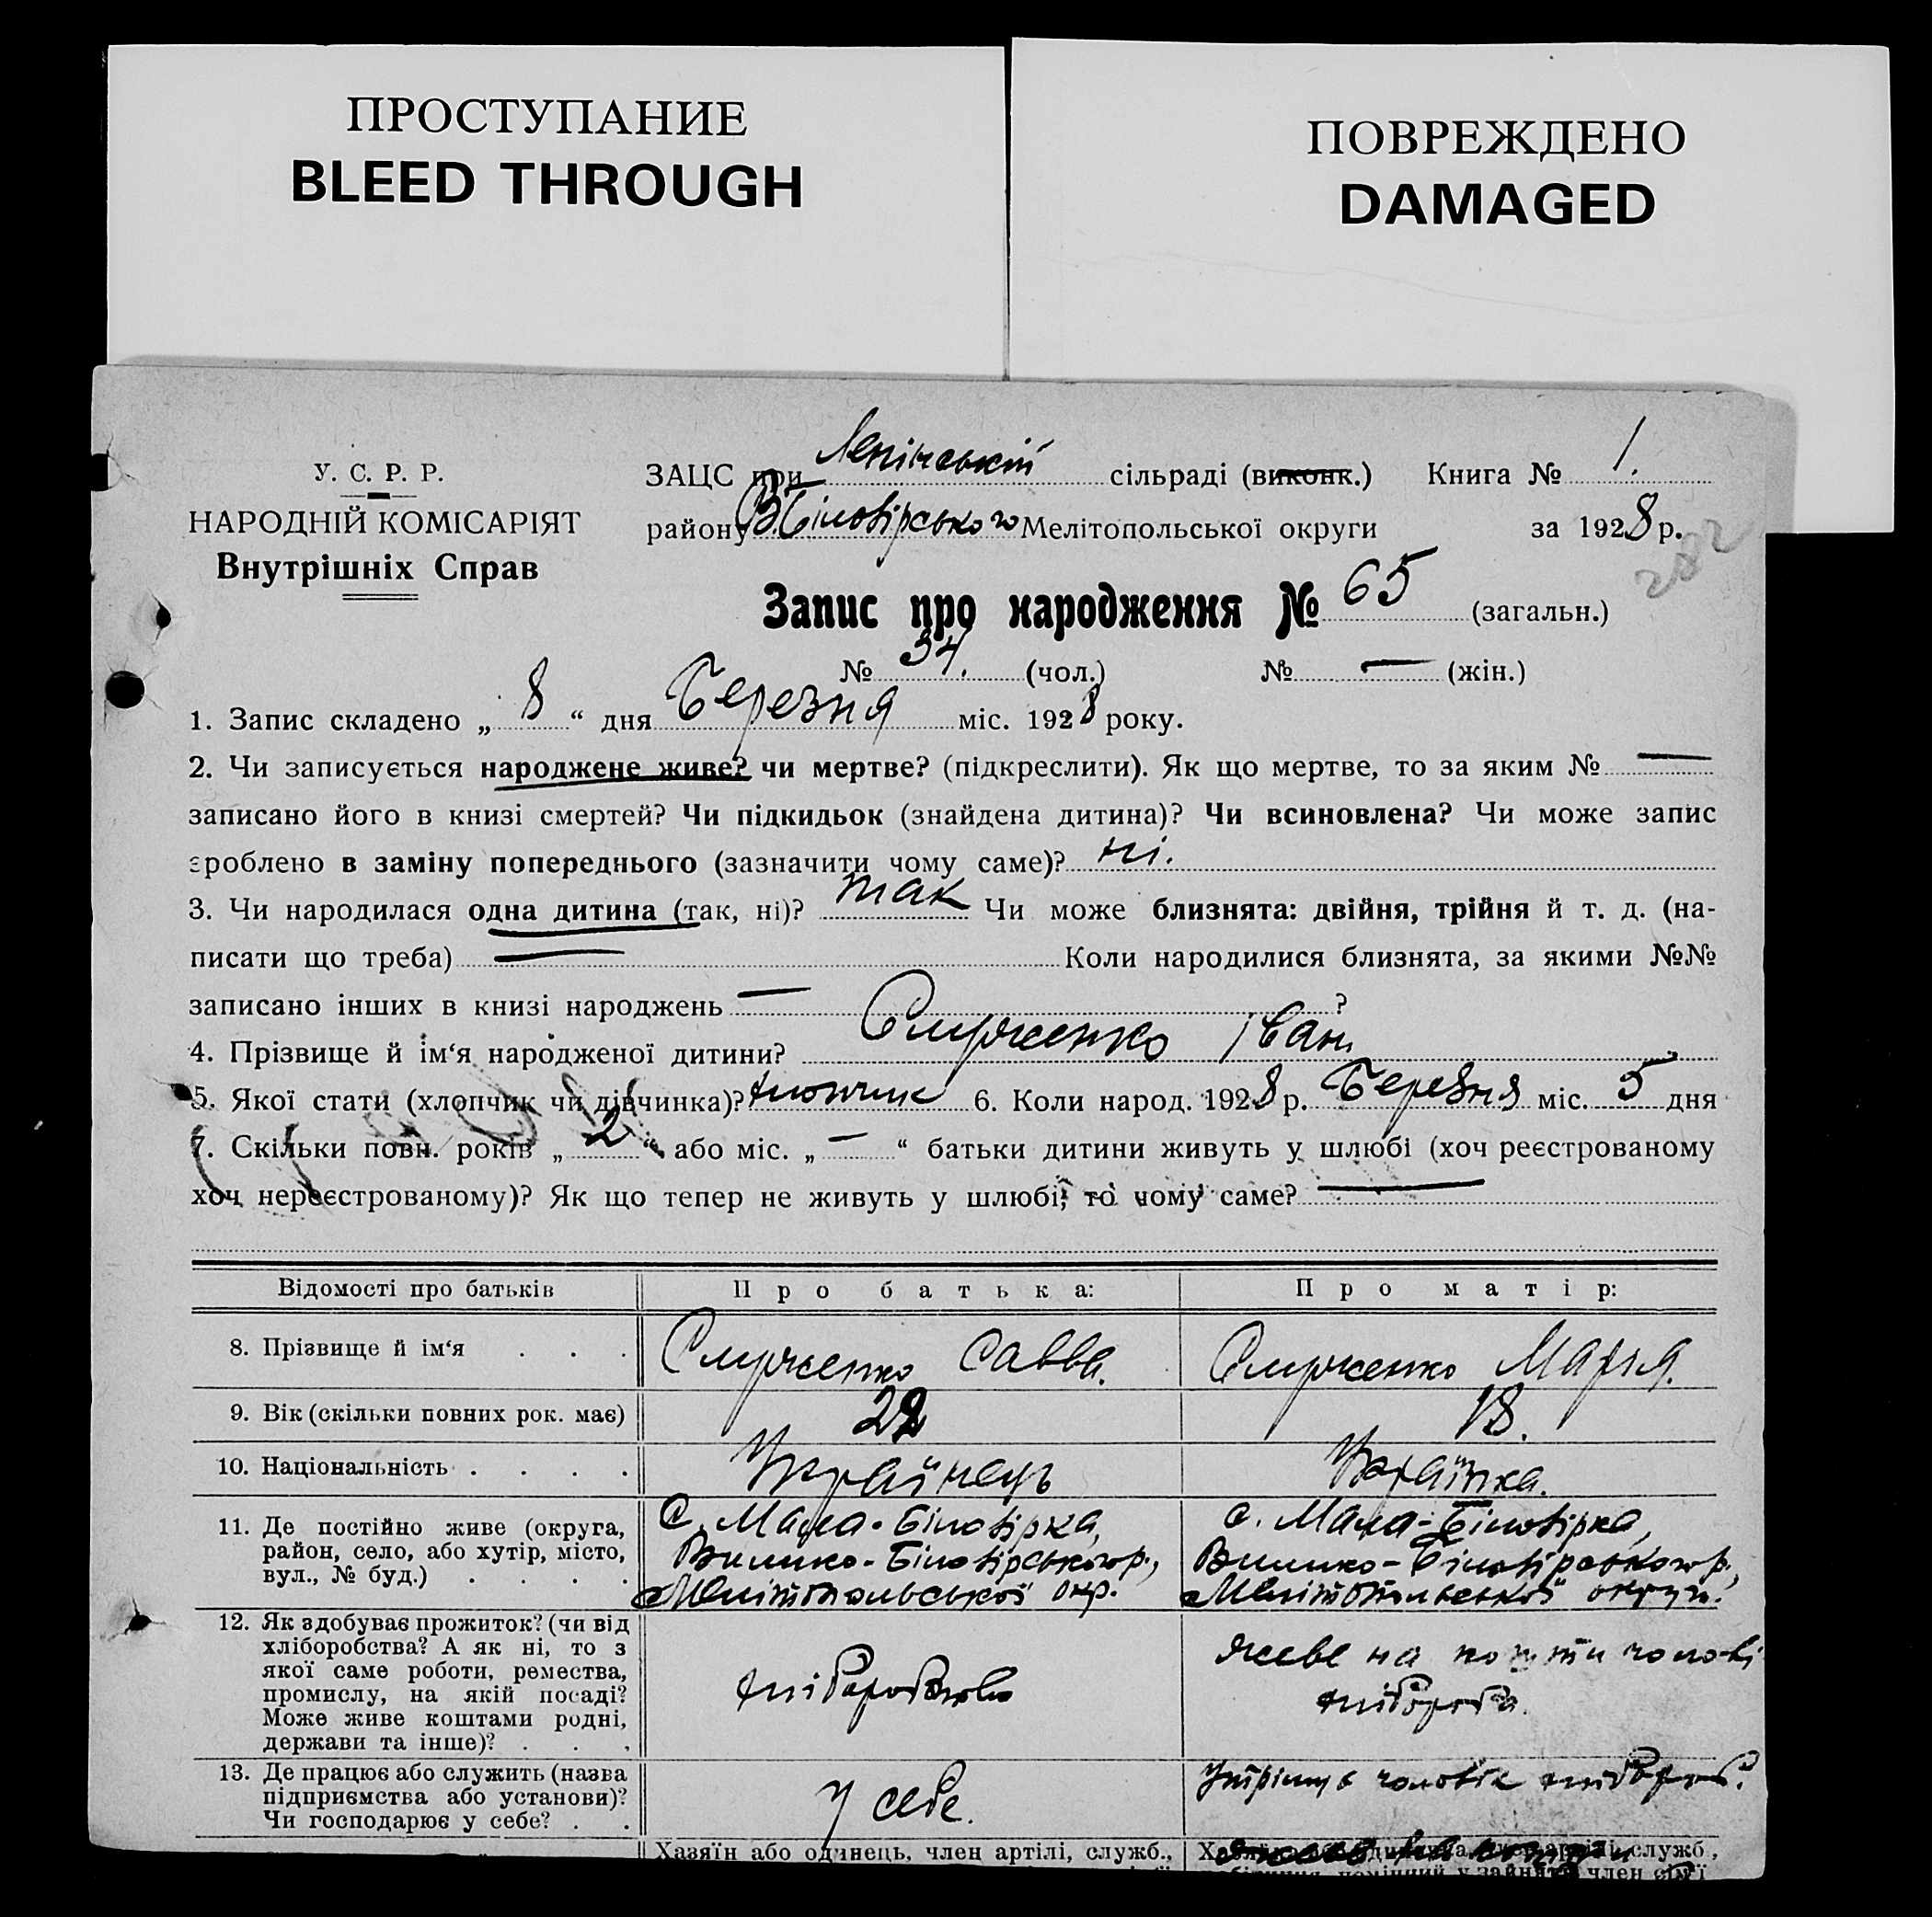 ПРОСТУПАНИЕ
BLEED THROUGH
ПОВРЕЖДЕНО
DAMAGED
У. С. Р. Р.
НАРОДНІЙ КОМІСАРІЯТ
Внутрішніх Справ
ЗАЦС при Ленінській сільраді (виконк.) Книга № 1.
району В. Білозірського Мелітопольської округи за 1928 р.
Запис про народження № 65 (загальн.)
№ 34. (чол.) № — (жін.)
1. Запис складено „ 8 “ дня Березня міс. 1928 року.
2. Чи записується народжене живе? чи мертве? (підкреслити). Як що мертве, то за яким № —
записано його в книзі смертей? Чи підкидьок (знайдена дитина)? Чи всиновлена? Чи може запис
зроблено в заміну попереднього (зазначити чому саме)? ні.
3. Чи народилася одна дитина (так, ні)? так Чи може близнята: двійня, трійня й т. д. (на-
писати що треба) — Коли народилися близнята, за якими №№
записано інших в книзі народжень — ?
4. Прізвище й ім‘я народженої дитини? Іван
5. Якої стати (хлопчик чи дівчинка)? хлопчик 6. Коли народ. 1928 р. Березня міс. 5 дня
7. Скільки повн. років „ 2 “ або міс. „ — “ батьки дитини живуть у шлюбі (хоч реєстрованому
хоч нереєстрованому)? Як що тепер не живуть у шлюбі, то чому саме? —
Відомості про батьків
Про батька:
Про матір:
8. Прізвище й ім‘я . . .
Савва.
Марія.
9. Вік (скільки повних рок. має)
22
18.
10. Національність . . . .
Українець
Українка.
11. Де постійно живе (округа,
район, село, або хутір, місто,
вул., № буд.) . . . .
С. Мала-Білозірка,
Велико-Білозірського р.,
Мелітопольської окр.
с. Мала-Білозірка,
Велико-Білозірського р.,
Мелітопольської округи.
12. Як здобуває прожиток? (чи від
хліборобства? А як ні, то з
якої саме роботи, ремества,
промислу, на якій посаді?
Може живе коштами родні,
держави та інше)? . . .
хліборобство
живе на кошти чолові
хлібороба.
13. Де працює або служить (назва
підприємства або установи)?
Чи господарює у себе? . .
у себе.
Утрімує чоловік хлібороб.
Хазяїн або одинець, член артілі, служб.,